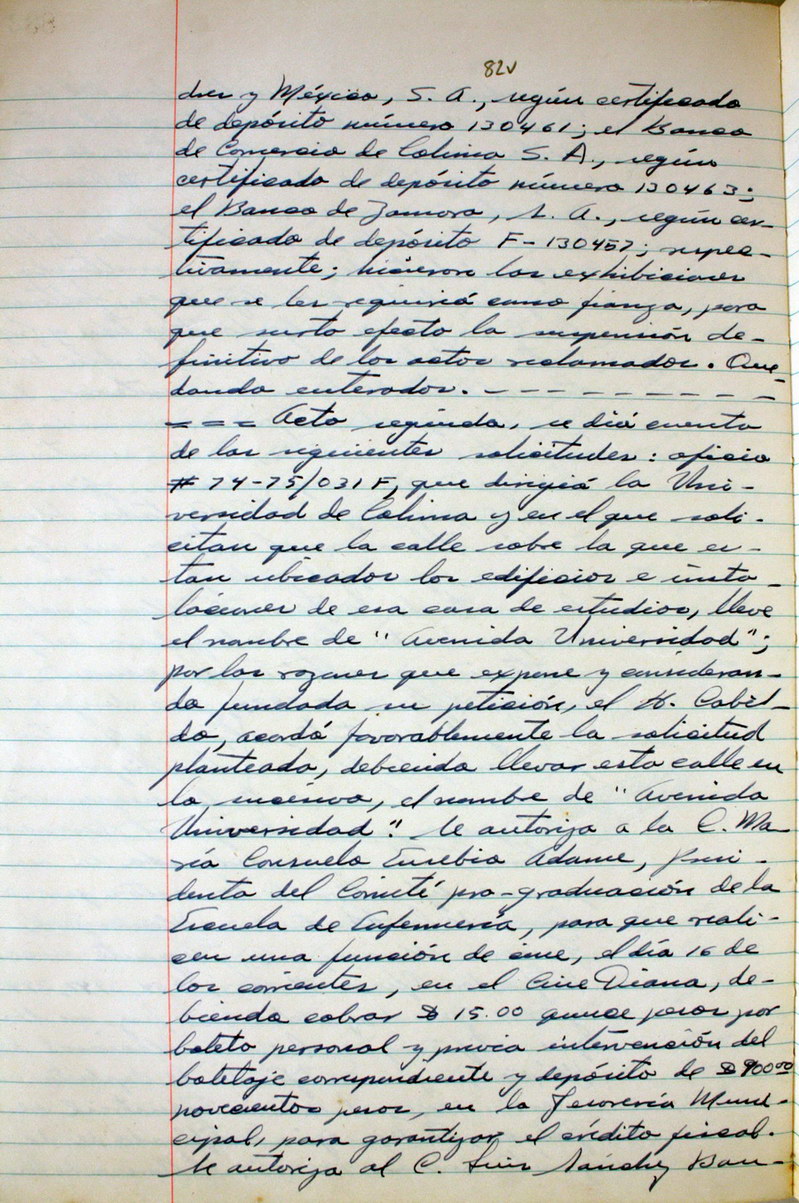 82v
dres y México, S. A., según certificado
de depósito número 130461; el Banco
de Comercio de Colima S. A., según
certificado de depósito número 130463;
el Banco de Zamora, S. A., según cer-
tificado de depósito F-130457; respec-
tivamente; hicieron las exhibiciones
que se les requirió como fianza, para
que surta efecto la suspensión de-
finitiva de los actos reclamados. Que-
dando enterados. - - - - - - - - - -
= = = Acto seguido, se dió cuenta
de las siguientes solicitudes: oficio
# 74-75/031 F, que dirigió la Uni-
versidad de Colima y en el que soli-
citan que la calle sobre la que es-
tan ubicados los edificios e insta-
laciones de esa casa de estudios, lleve
el nombre de "Avenida Universidad";
por las razones que expone y consideran-
do fundada su petición, el H. Cabil-
do, acordó favorablemente la solicitud
planteada, debiendo llevar esta calle en
lo sucesivo, el nombre de "Avenida
Universidad." Se autoriza a la C. Ma-
ría Consuelo Eusebio Adame, Presi-
denta del Comité pro-graduación de la
Escuela de Enfermería, para que reali-
cen una función de cine, el día 16 de
los corrientes, en el Cine Diana, de-
biendo cobrar $ 15.00 quince pesos por
boleto personal y previa intervención del
boletaje correspondiente y depósito de $ 900.00
novecientos pesos, en la Tesorería Muni-
cipal, para garantizar el crédito fiscal.
Se autoriza al C. Luis Sánchez Bau-